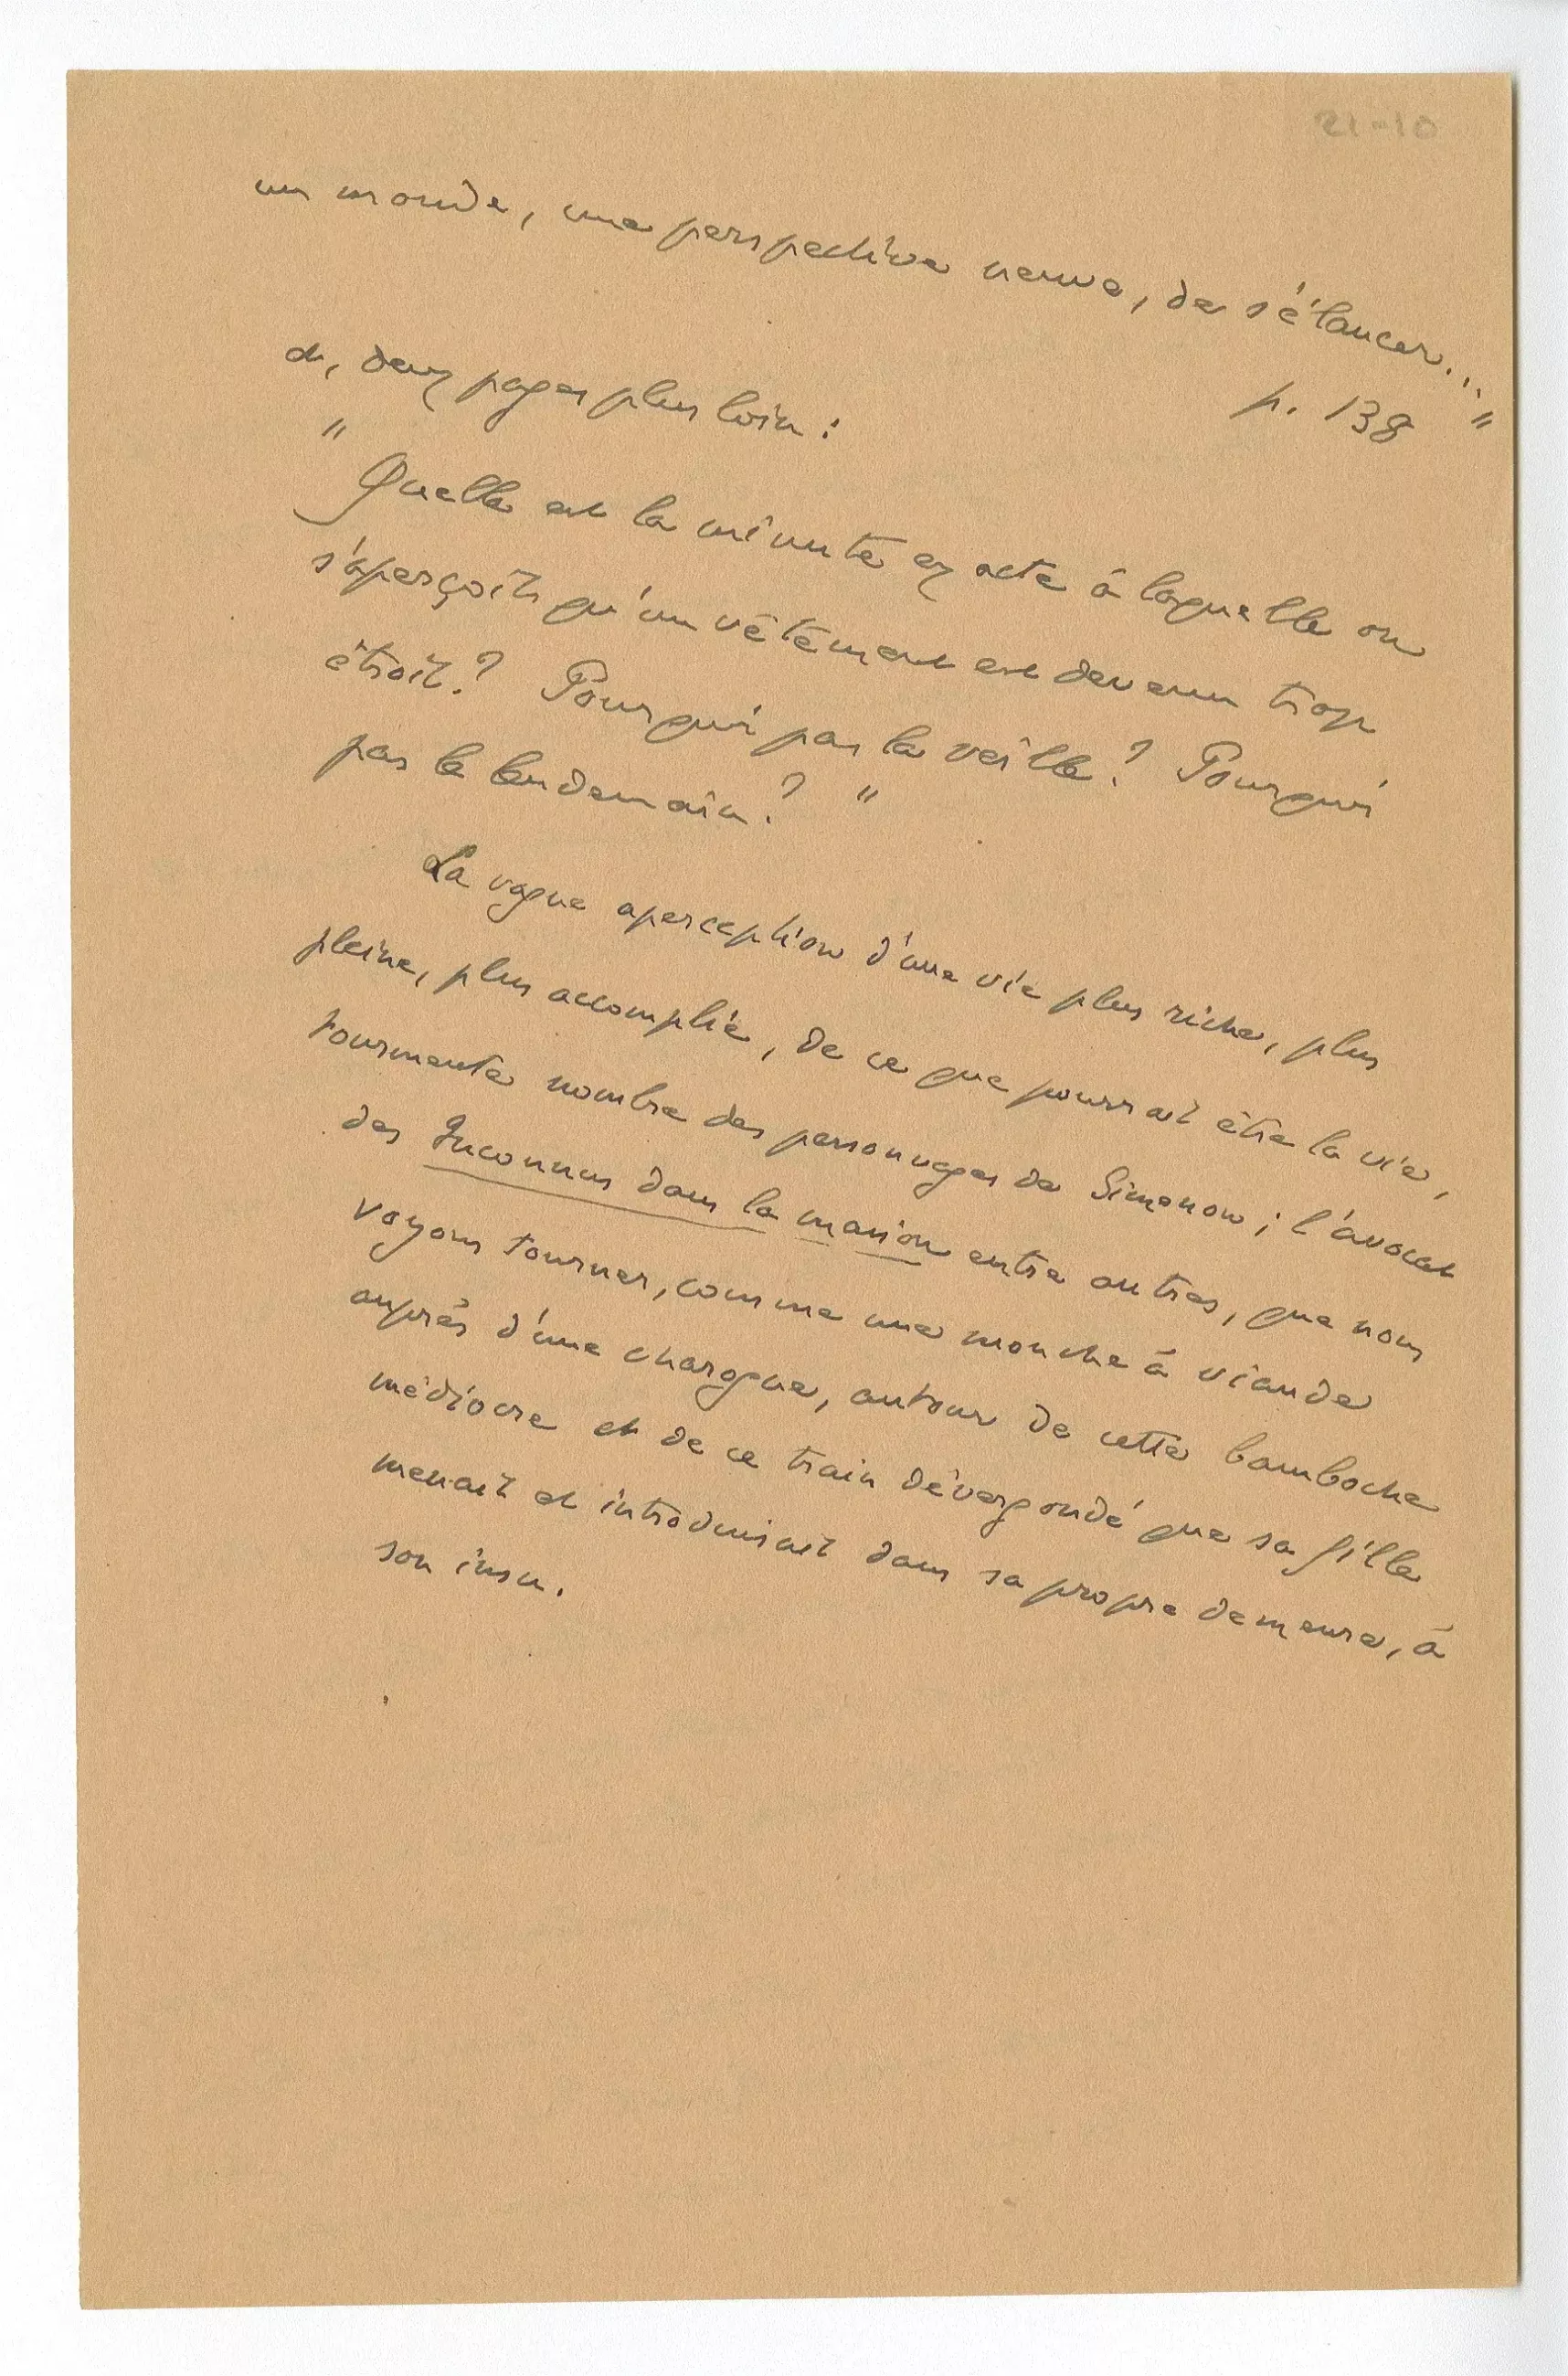 21-10
un monde, une perspective neuve, de s'élancer..."
p. 138
et, deux pages plus loin :
" Quelle est la minute exacte à laquelle on
s'aperçoit qu'un vêtement est devenu trop
étroit ? Pourquoi pas la veille ? Pourquoi
pas le lendemain ? "
La vague aperception d'une vie plus riche, plus
pleine, plus accomplie, de ce que pourrait être la vie,
tourmente nombre des personnages de Simenon ; l'avocat
des Inconnus dans la maison entre autres, que nous
voyons tourner, comme une mouche à viande
auprès d'une charogne, autour de cette bamboche
médiocre et de ce train dévergondé que sa fille
menait et introduisait dans sa propre demeure, à
son insu.